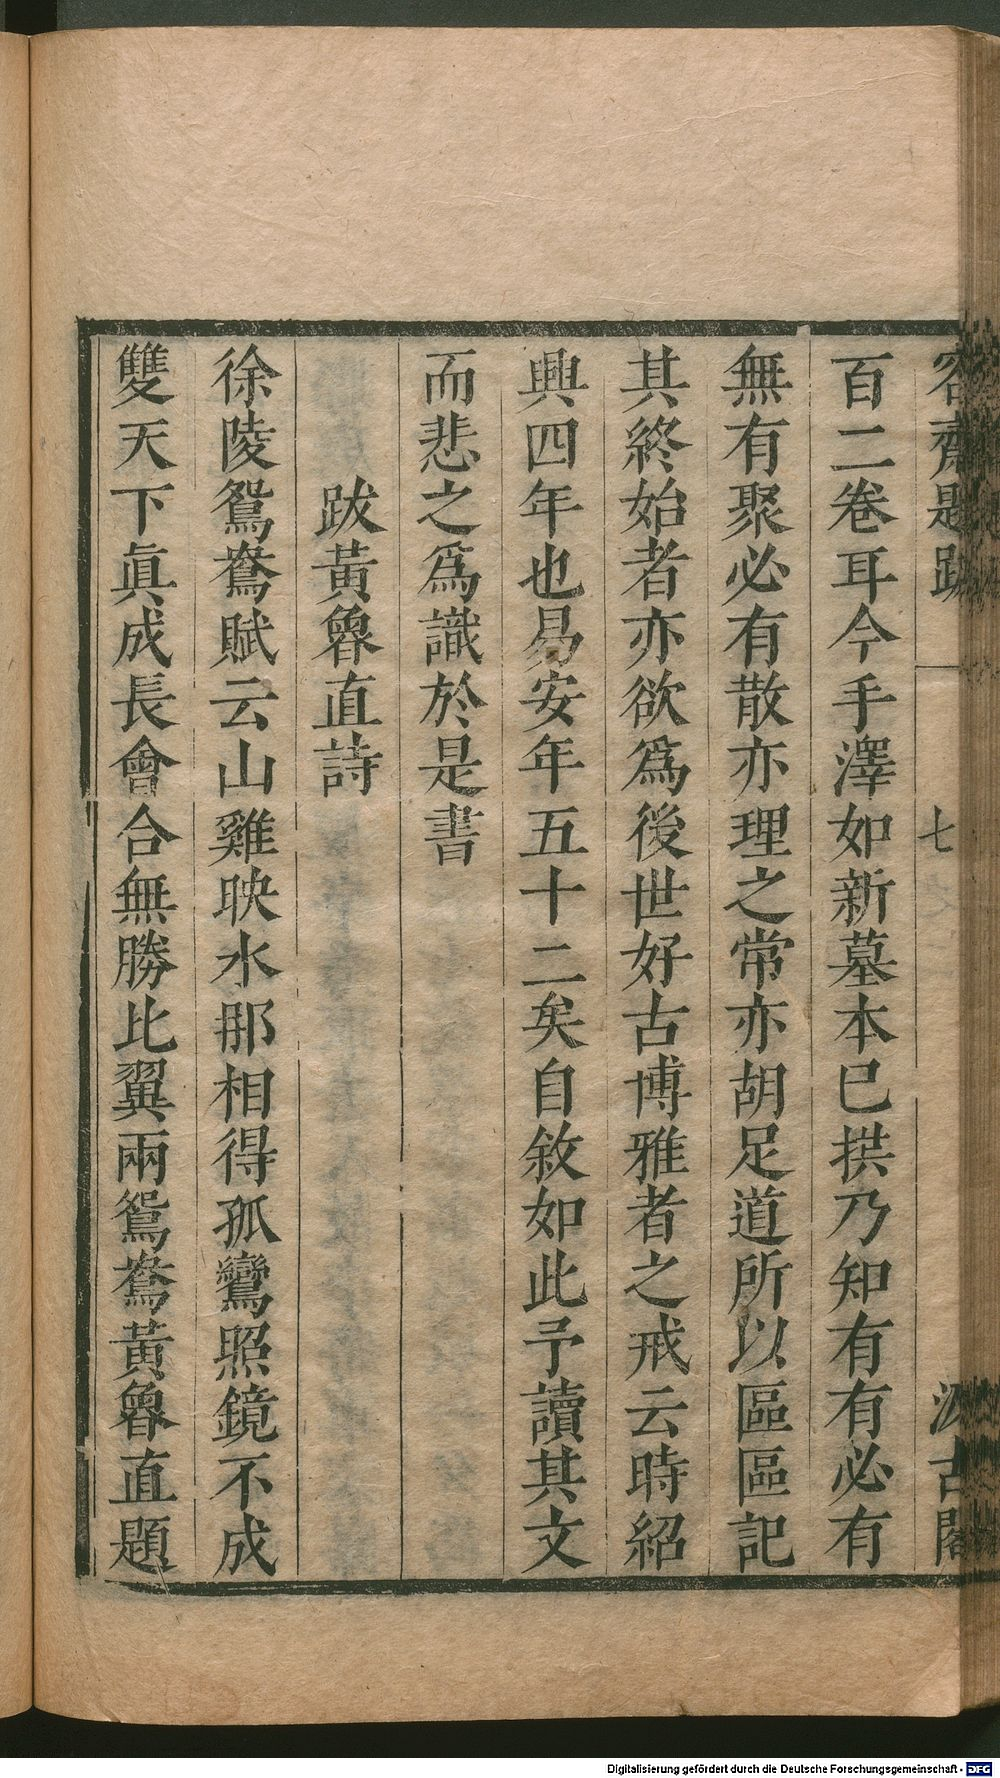 容齋題跋 七 汲古閣
百二卷耳今手澤如新墓本已拱乃知有有必有
無有聚必有散亦理之常亦胡足道所以區區記
其終始者亦欲爲後世好古博雅者之戒云時紹
興四年也易安年五十二矣自敘如此予讀其文
而悲之爲識於是書
跋黃魯直詩
徐陵鴛鴦賦云山雞映水那相得孤鸞照鏡不成
雙天下眞成長會合無勝比翼兩鴛鴦黃魯直題
Digitalisierung gefördert durch die Deutsche Forschungsgemeinschaft - DFG